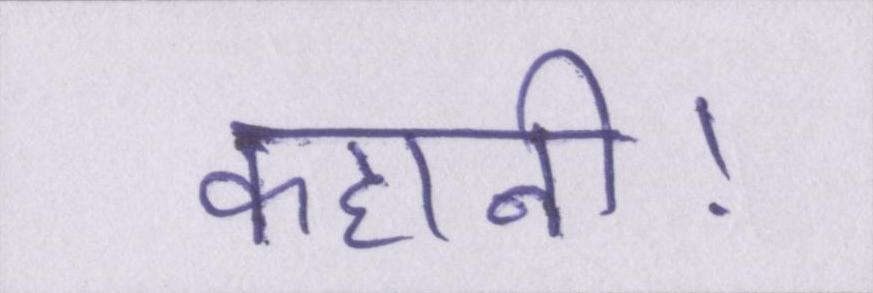 कहानी!